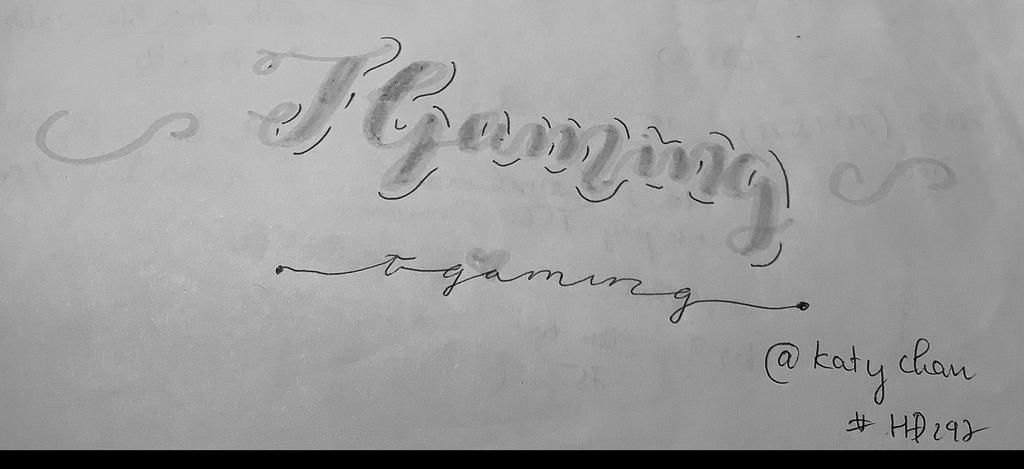 TGaming
t gaming
@ katy chan
# HD292